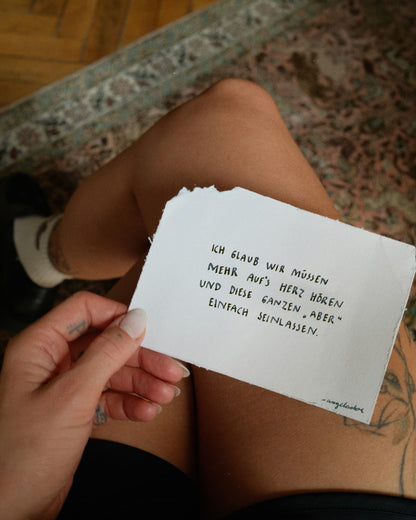 ICH GLAUB WIR MÜSSEN
MEHR AUF'S HERZ HÖREN
UND DIESE GANZEN „ABER“
EINFACH SEINLASSEN.
-angeladoe